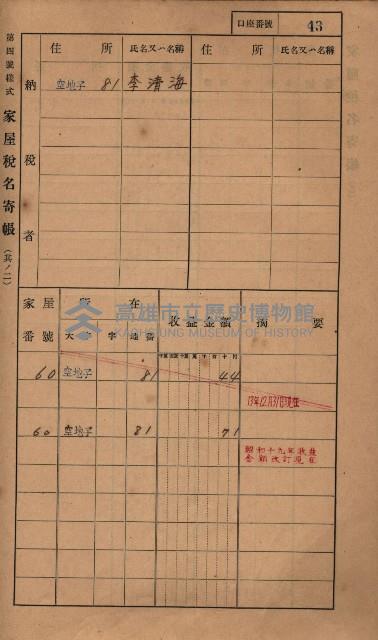 口座番號 43
第四號樣式 家屋稅名寄帳（其ノ二）
納稅者
住所 氏名又ハ名稱 住所 氏名又ハ名稱
空地子 81 李清海
家屋番號 所在 收益金額 摘要
大字 地番
60 空地子 81 44
19年12月31日現在
60 空地子 81 71
昭和十九年收益
金額改訂現在
高雄市立歷史博物館
KAOHSIUNG MUSEUM OF HISTORY